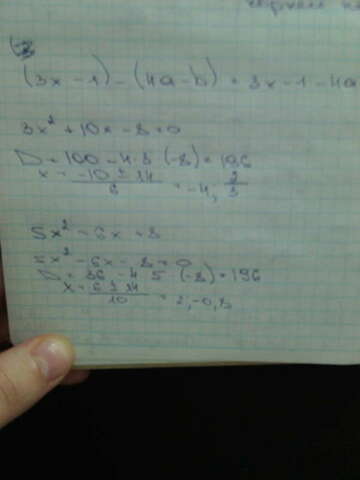 (3x - 1) - (4a - b) = 3x - 1 - 4a
3x² + 10x - 8 = 0
D = 100 - 4·3·(-8) = 196
x = (-10 ± 14)/6 = -4, 2/3
5x² - 6x = 8
5x² - 6x - 8 = 0
D = 36 - 4·5·(-8) = 196
x = (6 ± 14)/10 = 2, -0,8